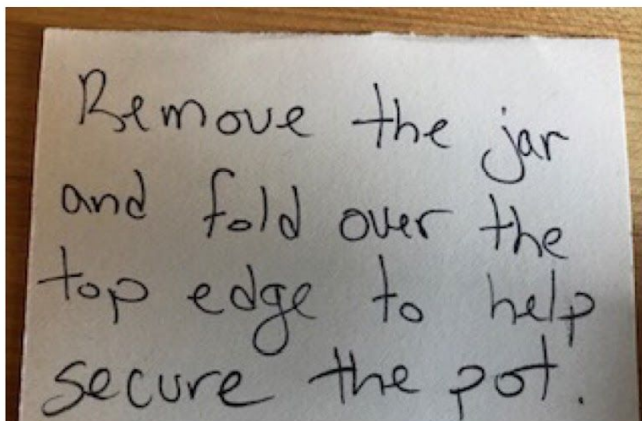 Remove the jar
and fold over the
top edge to help
secure the pot.